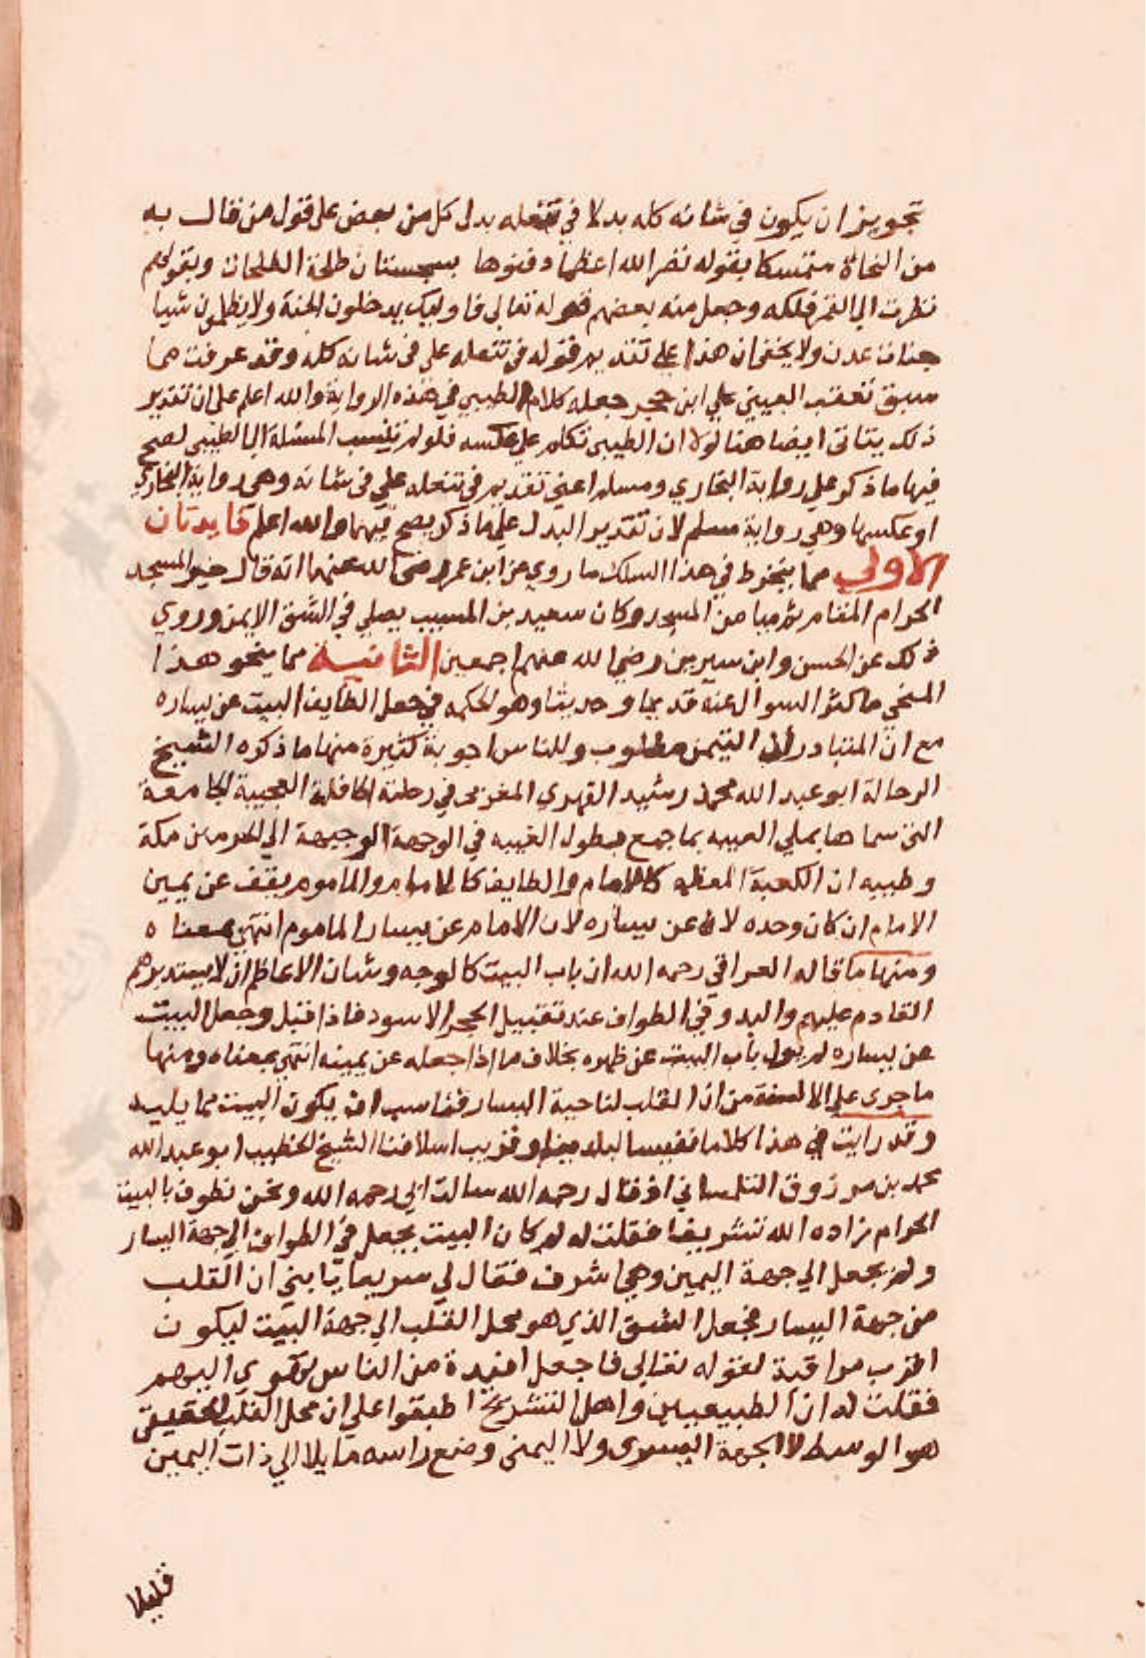 تجويز ان يكون في شانه كله بدلا في تنعله بدل كل من بعض على قول من قال به
من النحاة متمسكا بقوله نضر الله اعظما دفنوها بسجستان طلحة الطلحات وبقولهم
نظرت الى القمر فلكه وجعل منه بعضهم قوله تعالى فاوليك يدخلون الجنة ولا يظلمون شيا
جنات عدن ولا يخفى ان هذا على تقديم قوله في تنعله على في شانه كله وقد عرفت مما
سبق تعقب العيني على ابن حجر جعله كلام الطيبي في هذه الرواية والله اعلم على ان تقدير
ذلك يتاتى ايضا هنا لولا ان الطيبي تكلم على عكسه فلو لم ينسب المسئلة الى الطيبي لصح
فيها ما ذكر على رواية البخاري ومسلم اعني تقديم في تنعله على في شانه وهي رواية البخاري
او عكسها وهي رواية مسلم لان تقدير البدل على ما ذكر يصح فيهما والله اعلم فايدتان
الاولى مما ينخرط في هذا السلك ما روي عن ابن عمر رضي الله عنهما انه قال خير المسجد
الحرام المقام ثم ميامن المسجد وكان سعيد بن المسيب يصلي في الشق الايمن وروي
ذلك عن الحسن وابن سيرين رضي الله عنهم اجمعين الثانية مما ينحو هذا
المنحى ما كثر السوال عنه قديما وحديثا وهو الحكمه في جعل الطايف البيت عن يساره
مع ان المتبادر ان التيمن مطلوب وللناس اجوبة كثيرة منها ما ذكره الشيخ
الرحالة ابو عبد الله محمد رشيد الفهري المغربي في رحلته الحافلة العجيبة الجامعة
التي سماها بملي العيبه بما جمع بطول الغيبه في الوجهة الوجيهة الى الحرمين مكة
وطيبه ان الكعبة المعظمه كالامام والطايف كالماموم والماموم يقف عن يمين
الامام ان كان وحده لا عن يساره لان الامام عن يسار الماموم انتهى بمعناه
ومنها ما قاله العراقي رحمه الله ان باب البيت كالوجه وشان الاعاظم ان لا يستدبرهم
القادم عليهم والبدو في الطواف عند تقبيل الحجر الاسود فاذا قبل وجعل البيت
عن يساره لم يول باب البيت عن ظهره بخلاف ما اذا جعله عن يمينه انتهى بمعناه ومنها
ما جرى على الالسنة من ان القلب لناحية اليسار فناسب ان يكون البيت مما يليه
وقد رايت في هذا كلاما نفيسا لبلدينا وقريب اسلافنا الشيخ الخطيب ابو عبد الله
محمد بن مرزوق التلمساني اذ قال رحمه الله سالت ابي رحمه الله ونحن نطوف بالبيت
الحرام زاده الله تشريفا فقلت له لم كان البيت يجعل في الطواف الى جهة اليسار
ولم يجعل الى جهة اليمين وهي اشرف فقال لي سريعا يا بني ان القلب
من جهة اليسار فجعل الشق الذي هو محل القلب الى جهة البيت ليكون
اقرب مراقبة لقوله تعالى فاجعل افيدة من الناس تهوي اليهم
فقلت له ان الطبيعيين واهل التشريح اطبقوا على ان محل القلب الحقيقي
هو الوسط لا الجهة اليسرى ولا اليمنى وضع راسه مايلا الى ذات اليمين
قليلا